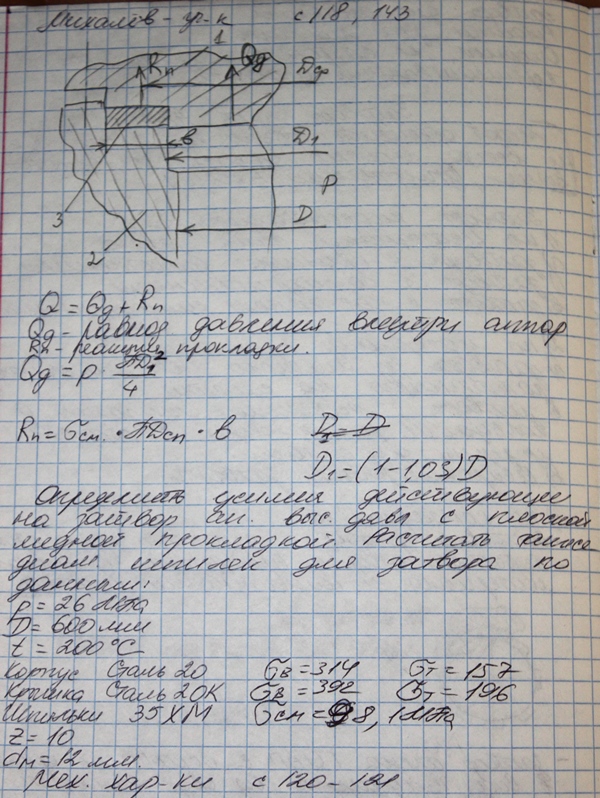 Михалёв - ур-к с 118, 143
1
Rп Qд Dср
в D1
P
3 D
2
Q = Qд + Rп
Qд - равное давления внутри аппар
Rп - реакция прокладки.
Qд = p · πD1²/4
Rп = Gсм. · πDсп · в D1 = D
D1 = (1-1,03)D
Определить усилия действующие
на затвор ап. выс. давл с плоской
медной прокладкой. Расчитать также
диам шпилек для затвора по
данным:
P = 26 МПа
D = 600 мм
t = 200°C
Корпус Сталь 20 Gв = 314 Gт = 157
Крышка Сталь 20К Gв = 392 Gт = 196
Шпильки 35ХМ Gсм = 98,1 МПа
z = 10
dш = 12 мм.
Мех. хар-ки с 120-121